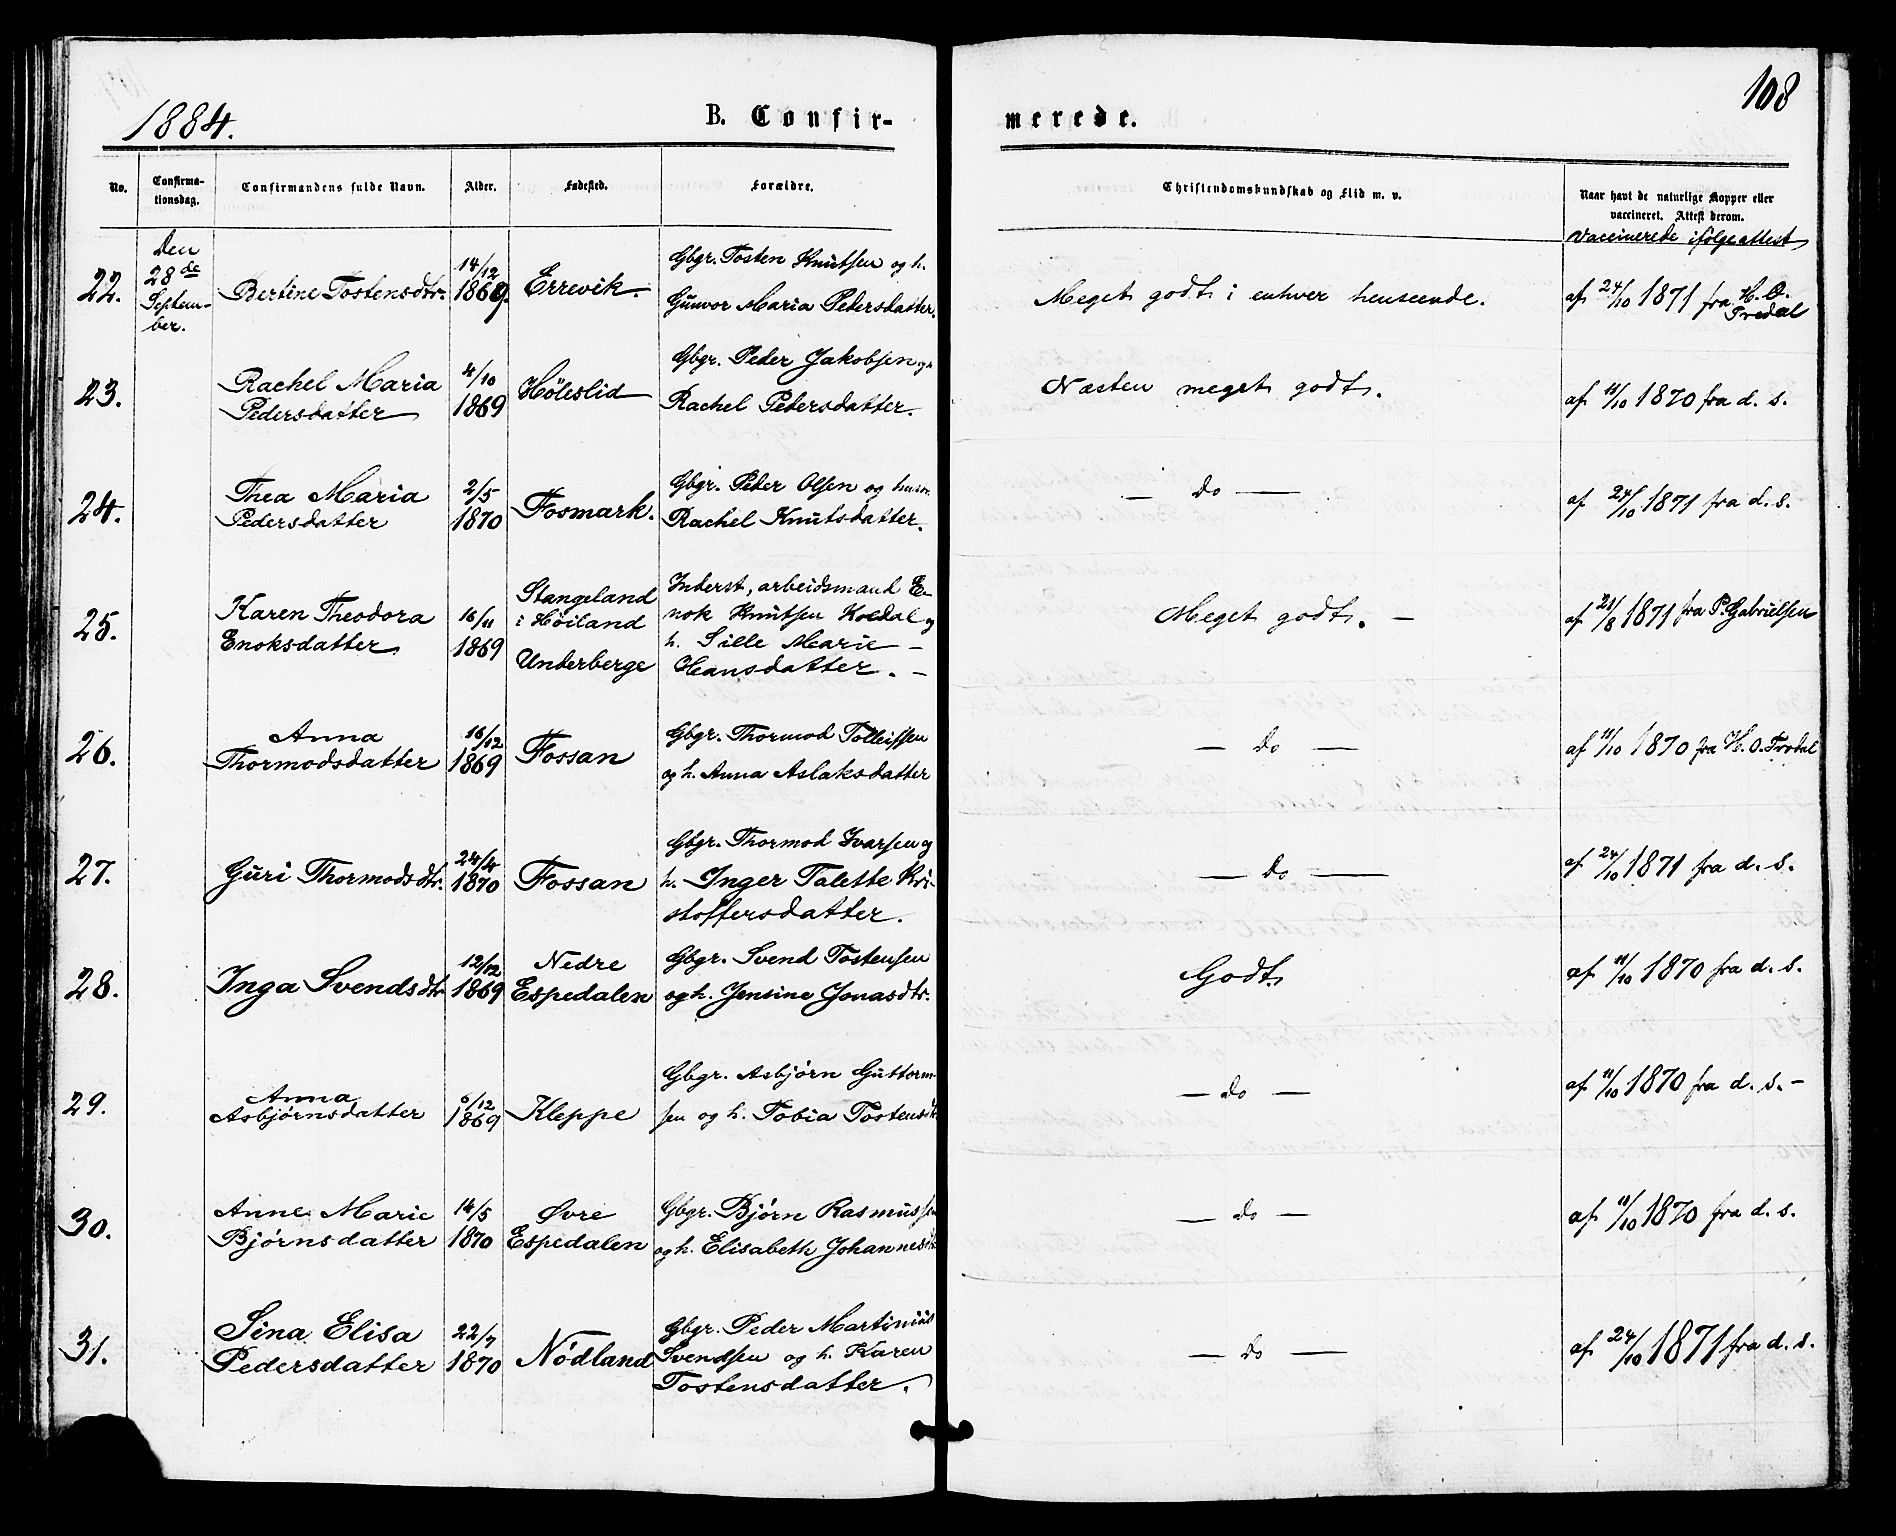 108
1884.
B. Confirmerede.
No.
Confirma-
tionsdag.
Confirmandens fulde Navn.
Alder.
Fødested.
Forældre.
Christendomskundskab og Flid m. v.
Naar havt de naturlige Kopper eller
vaccineret. Attest derom.
Vaccinerede ifølge attest
22.
Den
28de
Septem-
ber.
Bertine Tostensdtr.
14/12
1869.
Errevik.
Gbgr. Tosten Knutsen og h.
Gunvor Maria Pedersdatter.
Meget godt i enhver henseende.
af 24/10 1871 fra H. O.
Trodal
23.
Rachel Maria
Pedersdatter
4/10
1869
Høleslid
Gbgr. Peder Jakobsen og
Rachel Pedersdatter.
Næsten meget godt.
af 11/10 1870 fra d. s.
24.
Thea Maria
Pedersdatter
2/5
1870
Fosmark.
Gbgr. Peder Olsen og
Rachel Knutsdatter.
— do —
af 24/10 1871 fra d. s.
25.
Karen Theodora
Enoksdatter
16/11
1869
Stangeland
i Høiland
Underberge
Inderst, arbeidsmand E-
nok Knutsen Koldal og
h. Sille Marie —
Hansdatter. —
Meget godt. —
af 21/8 1871 fra P. Gabrielsen
26.
Anna
Thormodsdatter
16/12
1869
Fossan
Gbgr. Thormod Tolleifsen
og h. Anna Aslaksdatter
— do —
af 11/10 1870 fra H. O. Trodal
27.
Guri Thormodsdtr.
24/4
1870
Fossan
Gbgr. Thormod Ivarsen og
h. Inger Talette Kri-
stoffersdatter.
— do —
af 24/10 1871 fra d. s.
28.
Inga Svendsdtr.
12/12
1869
Nedre
Espedalen
Gbgr. Svend Tostensen
og h. Jensine Jonasdtr.
Godt.
af 11/10 1870 fra d. s.
29.
Anna
Asbjørnsdatter
6/12
1869
Kleppe
Gbgr. Asbjørn Guttorm-
sen og h. Tobia Tostensdtr
— do —
af 11/10 1870 fra d. s. —
30.
Anne Marie
Bjørnsdatter
14/5
1870
Øvre
Espedalen
Gbgr. Bjørn Rasmussen
og h. Elisabeth Johannesdtr
— do —
af 11/10 1870 fra d. s.
31.
Sina Elisa
Pedersdatter
22/7
1870
Nødland
Gbgr. Peder Martinius
Svendsen og h. Karen
Tostensdatter.
— do —
af 24/10 1871 fra d. s.